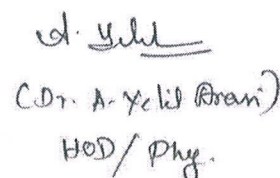 A. Yelil
(Dr. A. Yelil Arasi)
HOD/Phy.